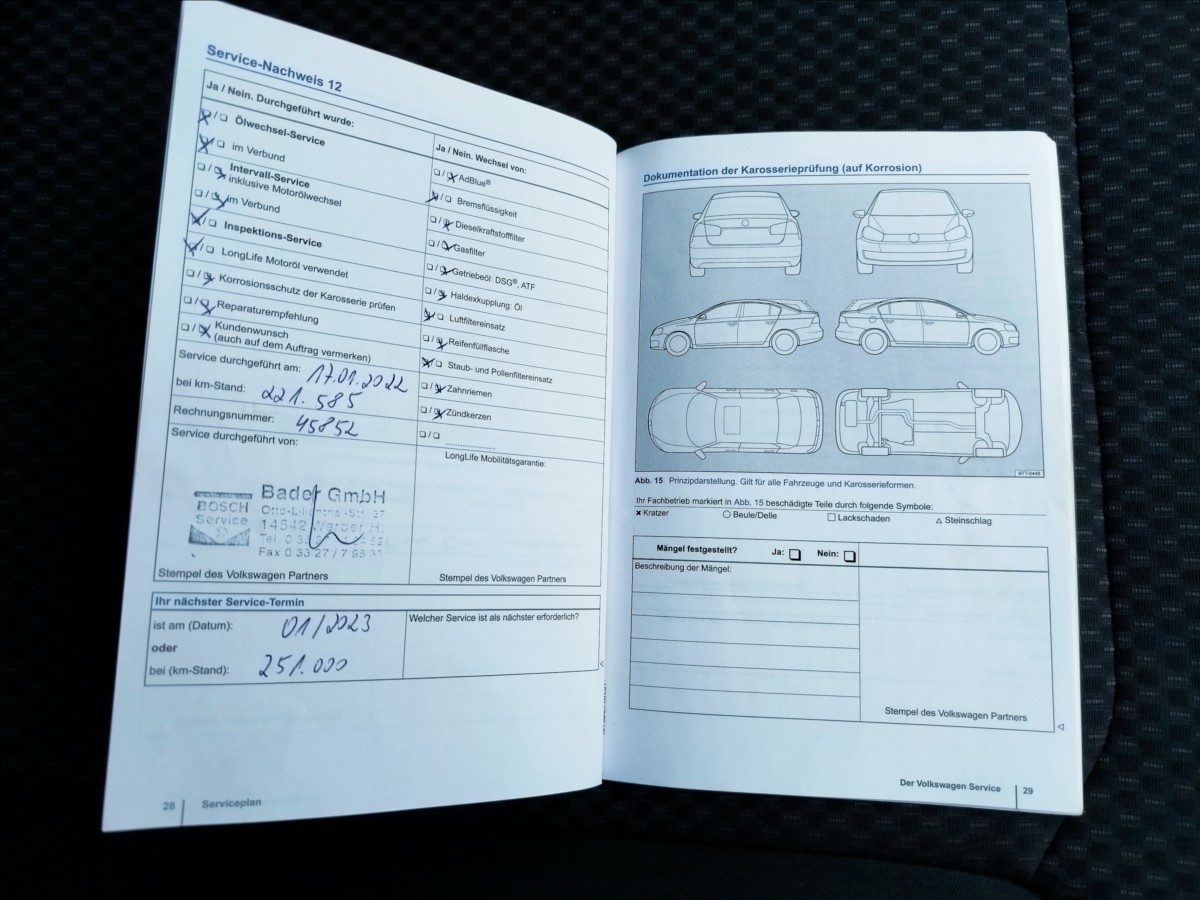 Service-Nachweis 12
Ja / Nein. Durchgeführt wurde:
Ölwechsel-Service
im Verbund
Intervall-Service
inklusive Motorölwechsel
im Verbund
Inspektions-Service
LongLife Motoröl verwendet
Korrosionsschutz der Karosserie prüfen
Reparaturempfehlung
Kundenwunsch
(auch auf dem Auftrag vermerken)
Service durchgeführt am: 17.01.2022
bei km-Stand: 221.585
Rechnungsnummer: 45852
Service durchgeführt von:
BOSCH
Service
Bader GmbH
14542 Werder
Stempel des Volkswagen Partners
Ja / Nein. Wechsel von:
AdBlue®
Bremsflüssigkeit
Dieselkraftstofffilter
Gasfilter
Getriebeöl: DSG®, ATF
Haldexkupplung: Öl
Luftfiltereinsatz
Reifenfüllflasche
Staub- und Pollenfiltereinsatz
Zahnriemen
Zündkerzen
LongLife Mobilitätsgarantie:
Stempel des Volkswagen Partners
Ihr nächster Service-Termin
ist am (Datum): 01/2023
oder
bei (km-Stand): 251.000
Welcher Service ist als nächster erforderlich?
28 Serviceplan
Dokumentation der Karosserieprüfung (auf Korrosion)
Abb. 15 Prinzipdarstellung. Gilt für alle Fahrzeuge und Karosserieformen.
Ihr Fachbetrieb markiert in Abb. 15 beschädigte Teile durch folgende Symbole:
Kratzer Beule/Delle Lackschaden Steinschlag
Mängel festgestellt? Ja: Nein:
Beschreibung der Mängel:
Stempel des Volkswagen Partners
Der Volkswagen Service 29